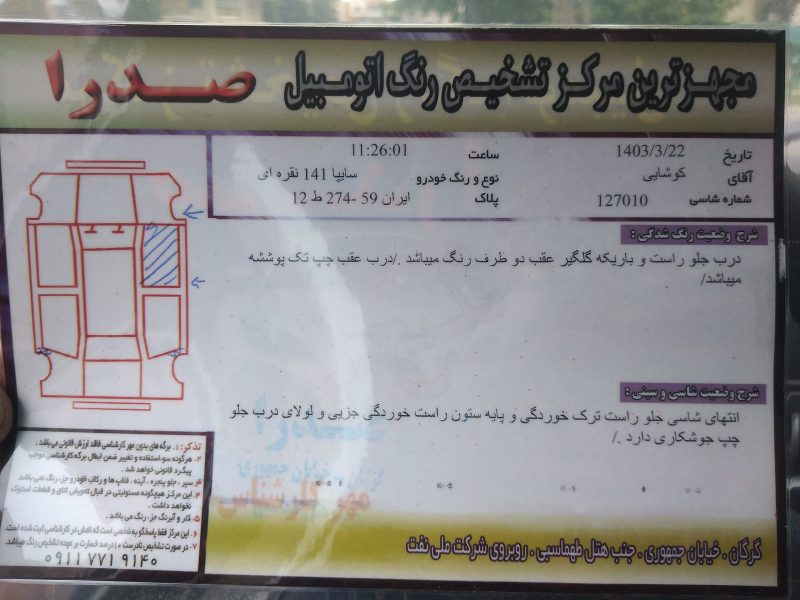 مجهزترین مرکز تشخیص رنگ اتومبیل
صدرا
تاریخ 1403/3/22 ساعت 11:26:01
آقای کوشایی نوع و رنگ خودرو سایپا 141 نقره ای
شماره شاسی 127010 پلاک ایران 59 -274 ط 12
شرح وضعیت رنگ شدگی :
درب جلو راست و باریکه گلگیر عقب دو طرف رنگ میباشد ./درب عقب چپ تک پوششه
میباشد/
شرح وضعیت شاسی و سینی :
انتهای شاسی جلو راست ترک خوردگی و پایه ستون راست خوردگی جزیی و لولای درب جلو
چپ جوشکاری دارد ./
تذکر: ۱. برگه های بدون مهر کارشناسی فاقد ارزش قانونی می باشد .
۲. هرگونه سو،استفاده و تغییر ضمن ابطال برگه کارشناسی موجب
پیگرد قانونی خواهد شد .
۳. سپر ، جلو پنجره ، آینه ، قلاب ها و رکاب خودرو جز، رنگ نمی باشد
۴. این مرکز هیچگونه مسئولیتی در قبال تعویض اتاق و قطعات استوک
نخواهد داشت .
۵. کلر و آبرنگ جز، رنگ می باشد .
۶. این مرکز فقط پاسخگو به شخصی است که نامش در کارشناسی ثبت شده است.
۷. در صورت تشخیص نادرست ۱۰ درصد خسارت بر عهده تشخیص رنگ میباشد.
۰۹۱۱ ۷۷۱ ۹۱۴۰
صدرا
گرگان خیابان جمهوری
مهر کارشناس
گرگان . خیابان جمهوری . جنب هتل طهماسبی . روبروی شرکت ملی نفت